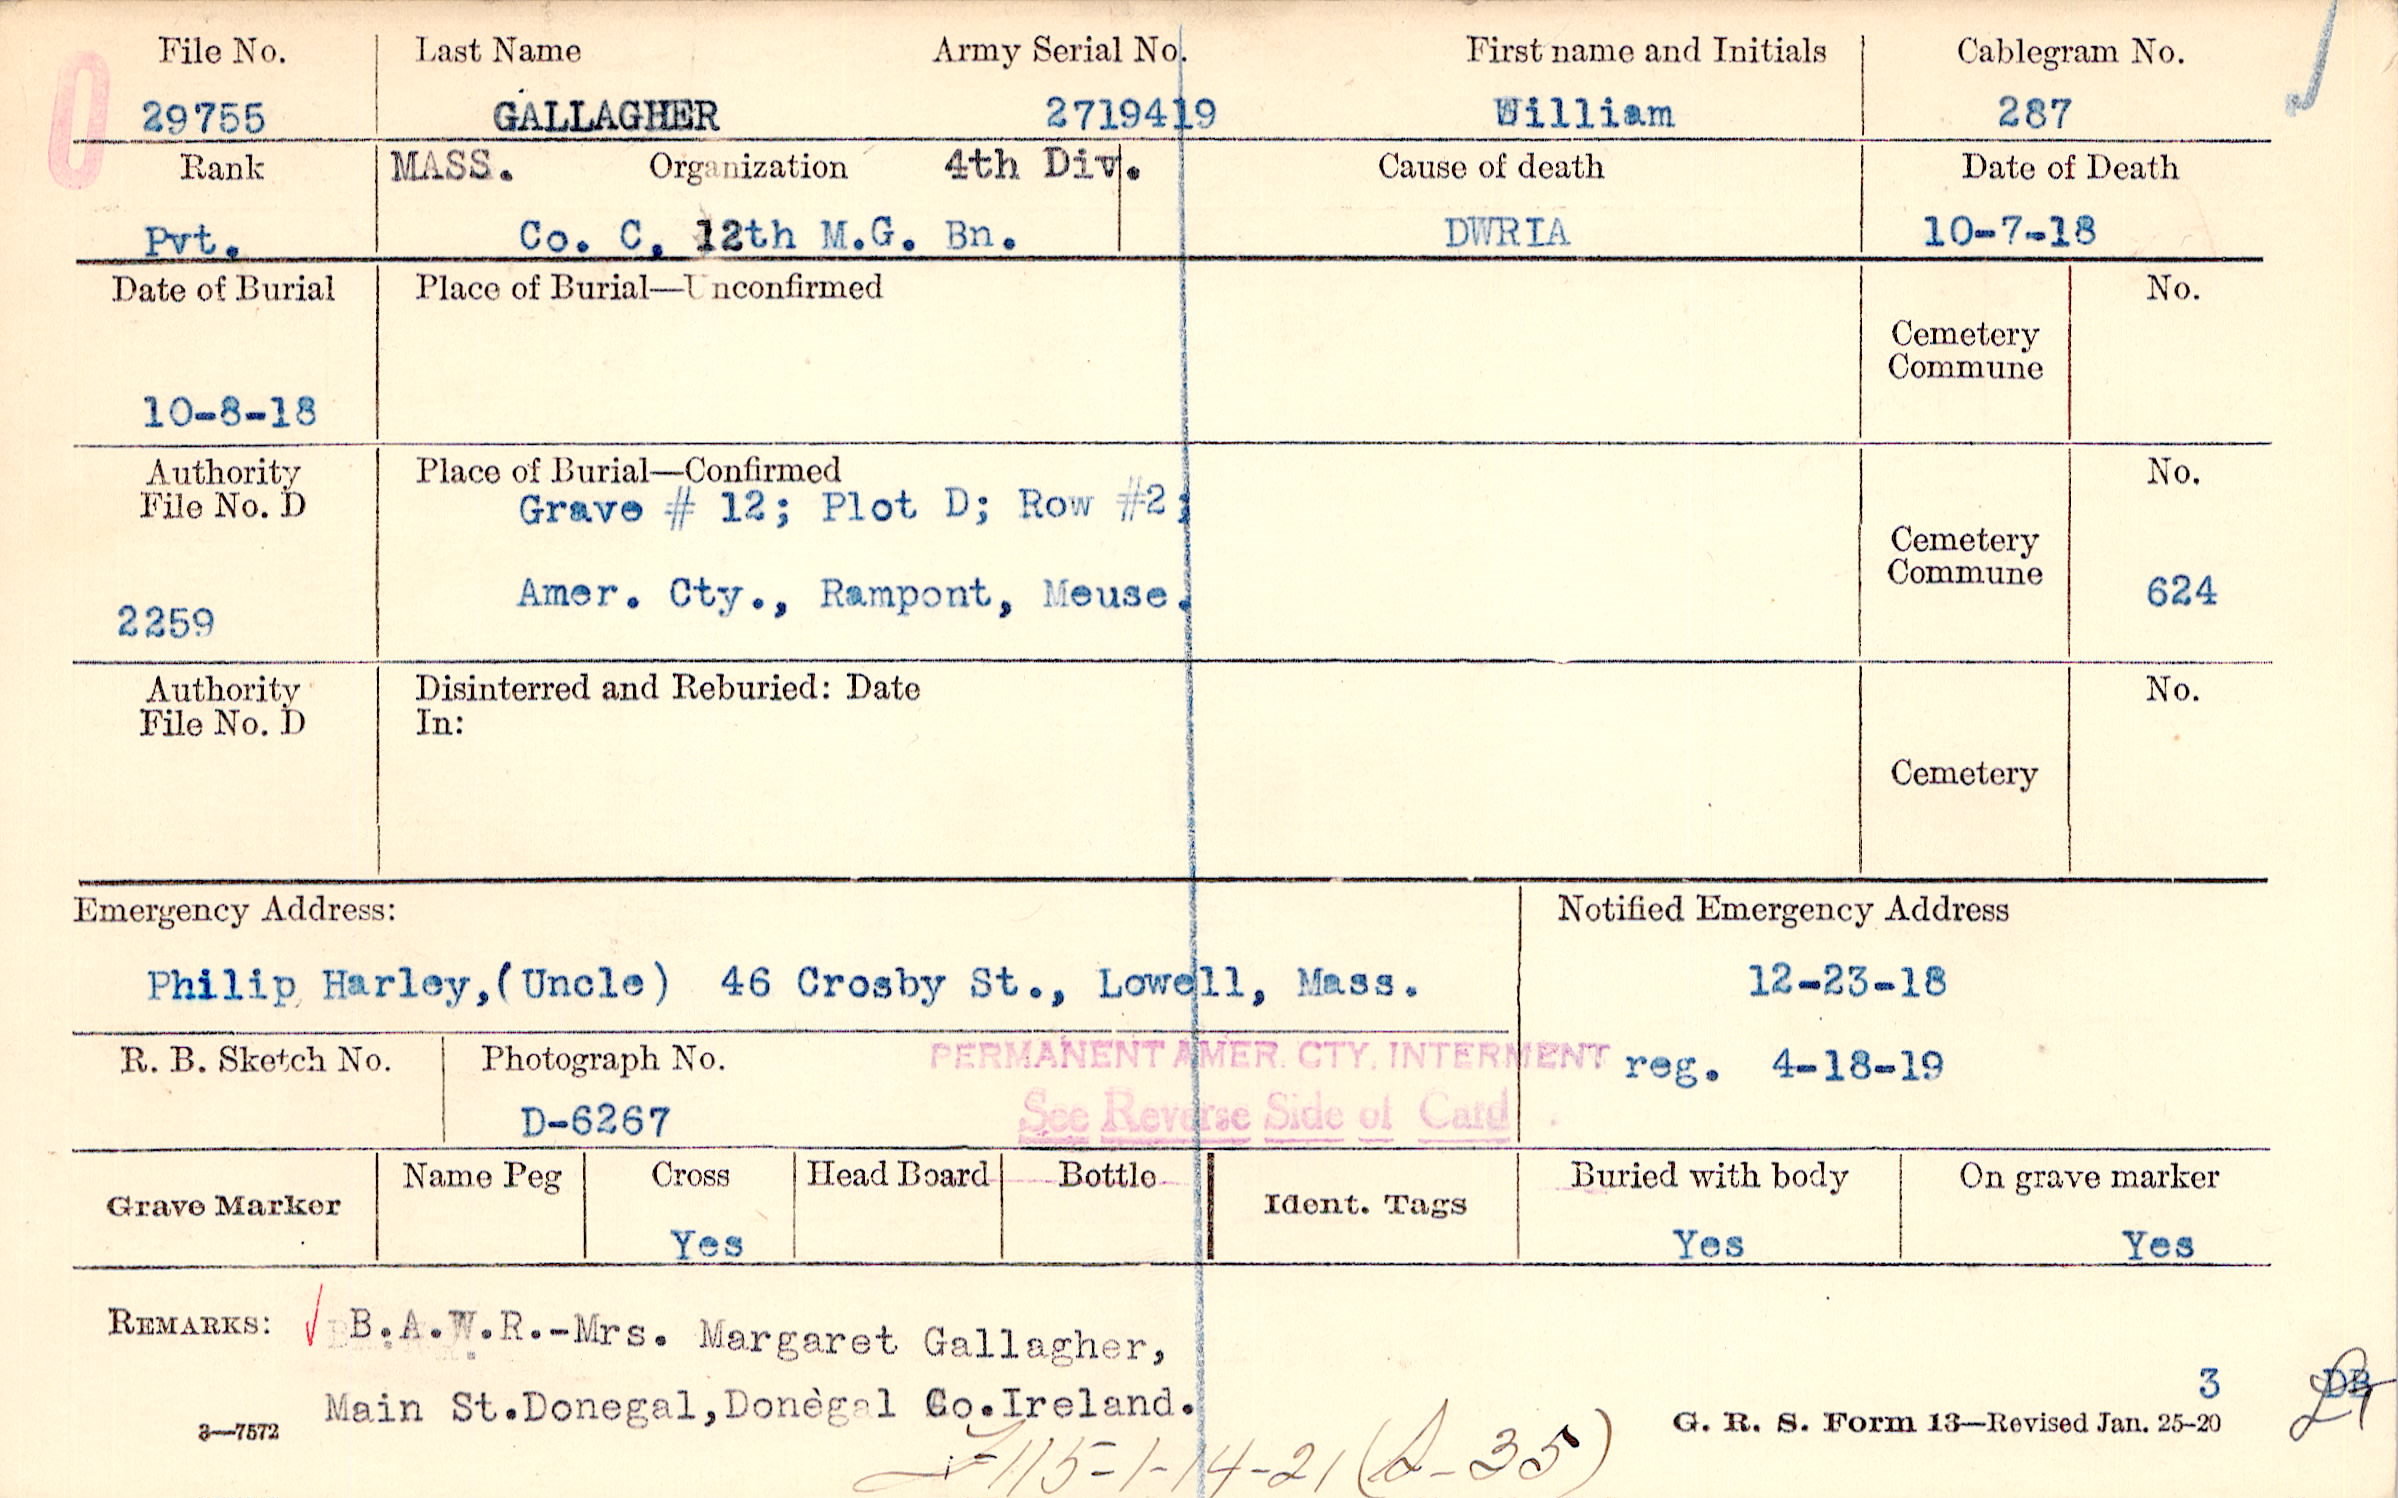 File No. Last Name Army Serial No. First name and Initials Cablegram No.
29755 GALLAGHER 2719419 William 287
Rank MASS. Organization 4th Div. Cause of death Date of Death
Pvt. Co. C, 12th M.G. Bn. DWRIA 10-7-18
Date of Burial Place of Burial—Unconfirmed No.
Cemetery
Commune
10-8-18
Authority Place of Burial—Confirmed No.
File No. D Grave # 12; Plot D; Row #2;
Cemetery
Commune
Amer. Cty., Rampont, Meuse. 624
2259
Authority Disinterred and Reburied: Date No.
File No. D In:
Cemetery
Emergency Address: Notified Emergency Address
Philip Harley,(Uncle) 46 Crosby St., Lowell, Mass. 12-23-18
R. B. Sketch No. Photograph No. PERMANENT AMER. CTY. INTERMENT reg. 4-18-19
D-6267 See Reverse Side of Card
Grave Marker Name Peg Cross Head Board Bottle Ident. Tags Buried with body On grave marker
Yes Yes Yes
REMARKS: B.A.W.R.-Mrs. Margaret Gallagher,
Main St.Donegal,Donegal Co.Ireland. 3
3—7572 G. R. S. Form 13—Revised Jan. 25-20
115-1-14-21